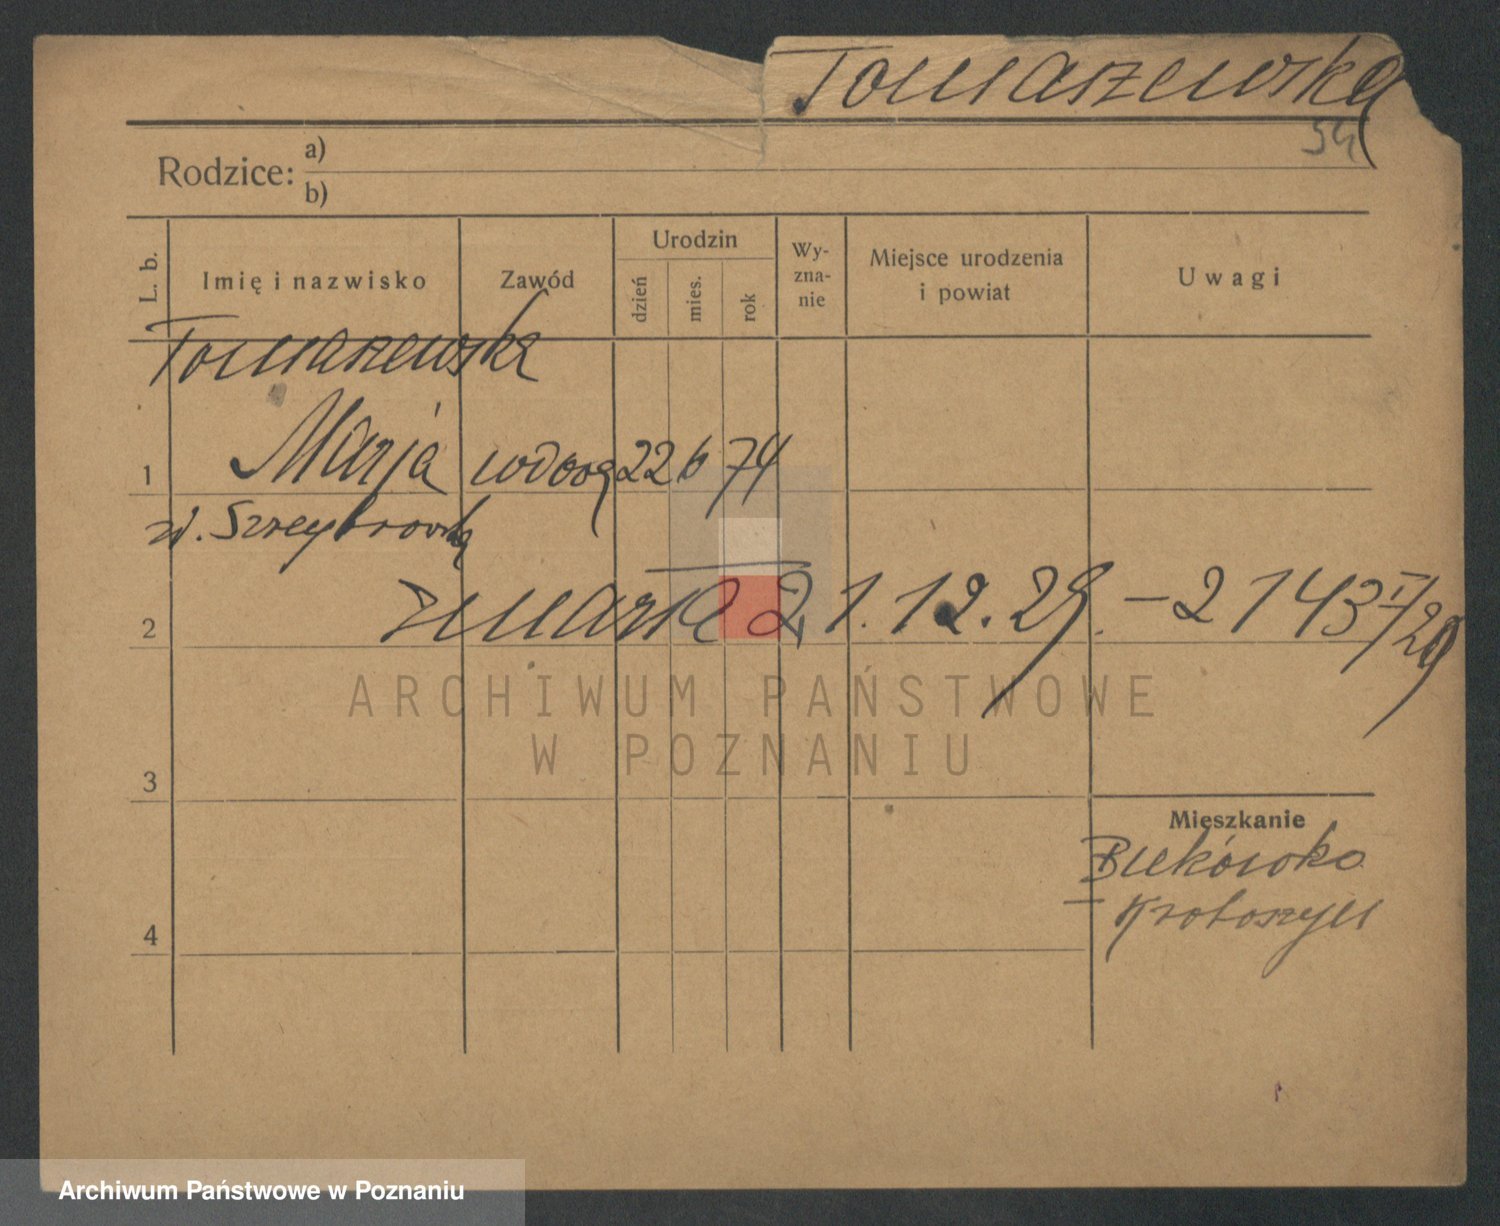 Tomaszewska
54
Rodzice: a)
b)
L. b.
Imię i nazwisko
Zawód
Urodzin
dzień
mies.
rok
Wy-
zna-
nie
Miejsce urodzenia
i powiat
Uwagi
Tomaszewska
1 Marja wdowa 22 6 74
zd.
zmarła 21.12.29. – 2143 I/29
2
ARCHIWUM PAŃSTWOWE
W POZNANIU
3
Mieszkanie
– Krotoszyn
4
Archiwum Państwowe w Poznaniu